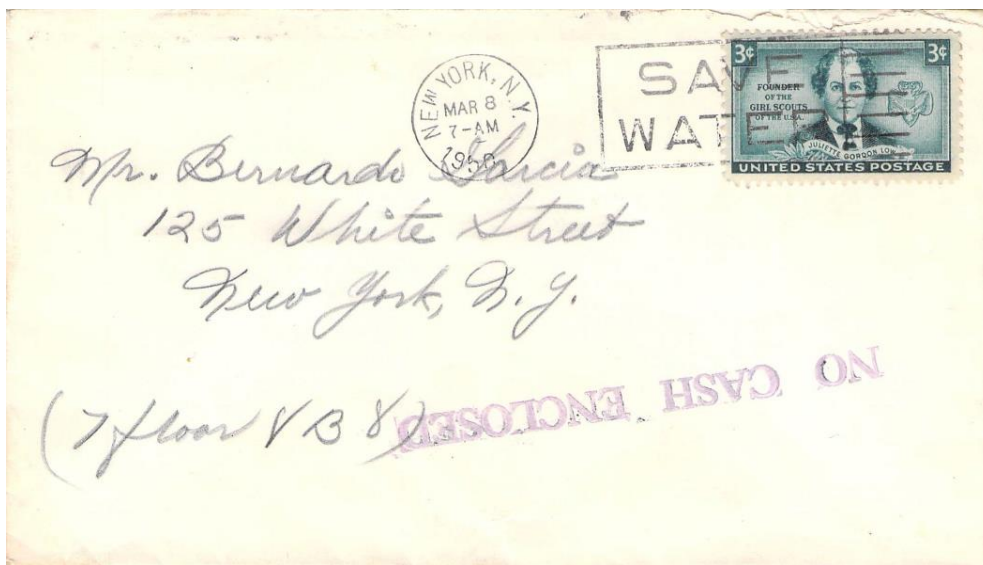 NEW YORK, N.Y.
MAR 8
7-AM
1950
SAVE
WATER
3¢ 3¢
FOUNDER
OF THE
GIRL SCOUTS
OF THE U.S.A.
JULIETTE GORDON LOW
UNITED STATES POSTAGE
Mr. Bernardo Garcia
125 White Street
New York, N.Y.
NO CASH ENCLOSED
(7 floor 8 B 8)